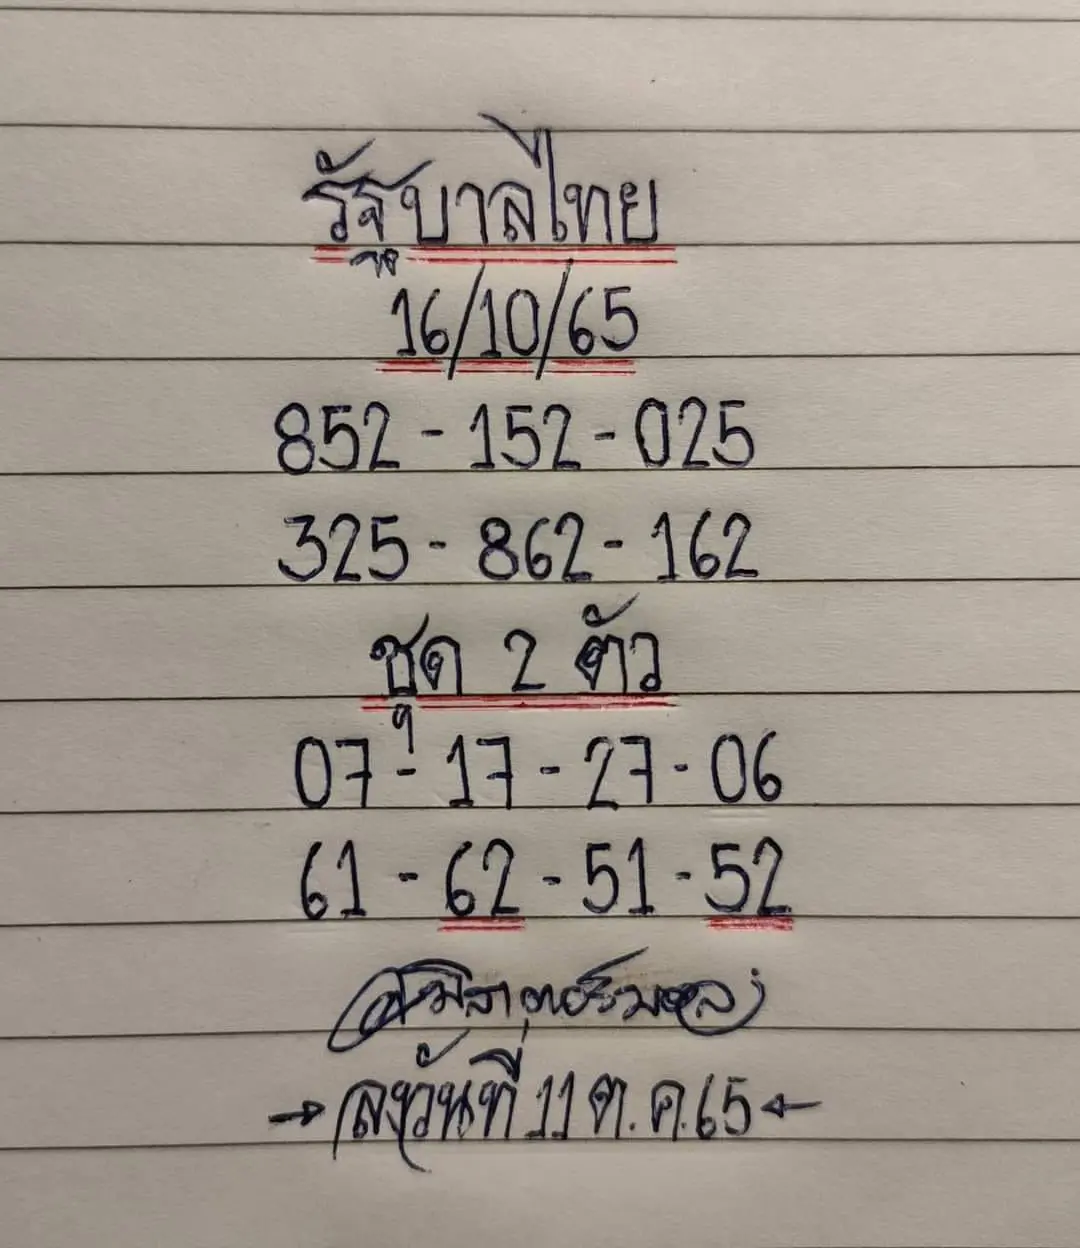 รัฐบาลไทย
16/10/65
852 - 152 - 025
325 - 862 - 162
ชุด 2 ตัว
07 - 17 - 27 - 06
61 - 62 - 51 - 52
→ ลงวันที่ 11 ต.ค.65 ←